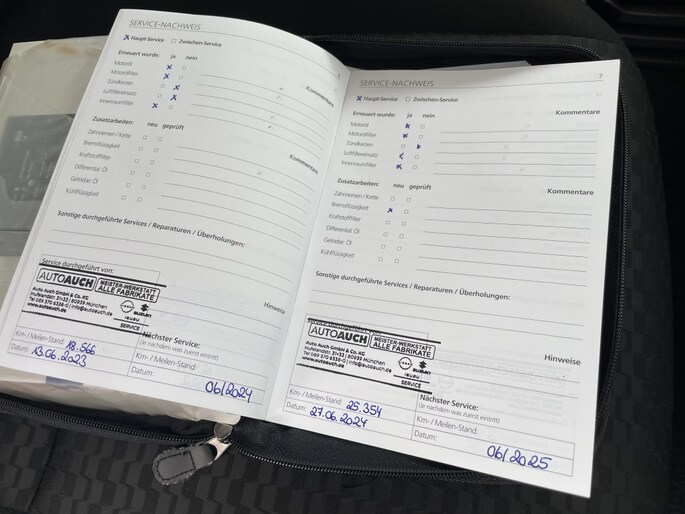 SERVICE-NACHWEIS
Haupt-Service Zwischen-Service
Erneuert wurde: ja nein Kommentare
Motoröl
Motorölfilter
Zündkerzen
Luftfiltereinsatz
Innenraumfilter
Zusatzarbeiten: neu geprüft Kommentare
Zahnriemen / Kette
Bremsflüssigkeit
Kraftstofffilter
Differential Öl
Getriebe Öl
Kühlflüssigkeit
Sonstige durchgeführte Services / Reparaturen / Überholungen:
Service durchgeführt von: Hinweise
AUTOAUCH MEISTER-WERKSTATT
ALLE FABRIKATE
Auto Auch GmbH & Co. KG
Hufelandstr. 31+33 | 80939 München
Tel 089 370 6339-0 | info@autoauch.de
www.autoauch.de
OPEL SUZUKI
ISUZU
SERVICE
Km- / Meilen-Stand: 18.566
Datum: 13.06.2023
Nächster Service:
(je nachdem was zuerst eintritt)
Km- / Meilen-Stand:
Datum: 06/2024
SERVICE-NACHWEIS 7
Haupt-Service Zwischen-Service
Erneuert wurde: ja nein Kommentare
Motoröl
Motorölfilter
Zündkerzen
Luftfiltereinsatz
Innenraumfilter
Zusatzarbeiten: neu geprüft Kommentare
Zahnriemen / Kette
Bremsflüssigkeit
Kraftstofffilter
Differential Öl
Getriebe Öl
Kühlflüssigkeit
Sonstige durchgeführte Services / Reparaturen / Überholungen:
Hinweise
AUTOAUCH MEISTER-WERKSTATT
ALLE FABRIKATE
Auto Auch GmbH & Co. KG
Hufelandstr. 31+33 | 80939 München
Tel 089 370 6339-0 | info@autoauch.de
www.autoauch.de
OPEL SUZUKI
ISUZU
SERVICE
Km- / Meilen-Stand: 25.354
Datum: 27.06.2024
Nächster Service:
(je nachdem was zuerst eintritt)
Km- / Meilen-Stand:
Datum: 06/2025